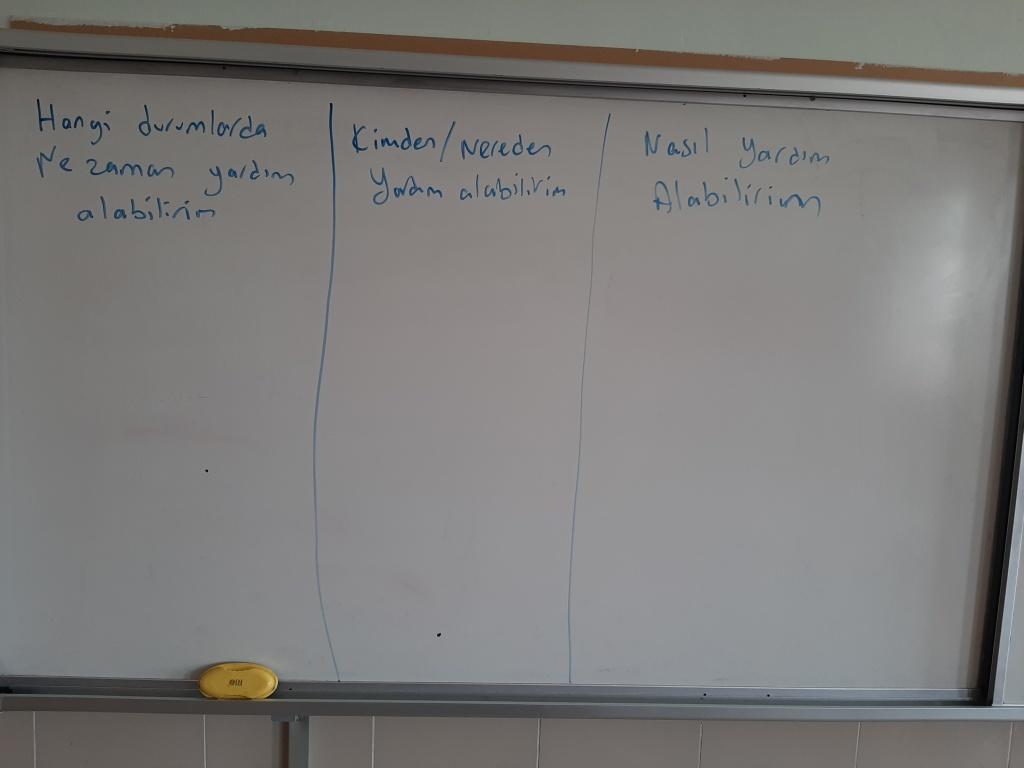 Hangi durumlarda
Ne zaman yardım
alabilirim
Kimden/Nereden
Yardım alabilirim
Nasıl Yardım
Alabilirim